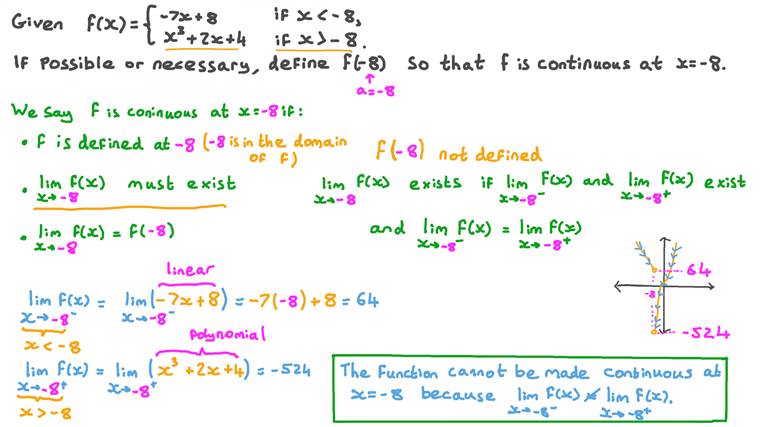 Given f(x) = { -7x+8 if x < -8,
x³+2x+4 if x > -8.
If possible or necessary, define f(-8) so that f is continuous at x=-8.
a=-8
We say f is coninuous at x=-8 if:
• f is defined at -8 (-8 is in the domain of f) f(-8) not defined
• lim x→-8 f(x) must exist lim x→-8 f(x) exists if lim x→-8⁻ f(x) and lim x→-8⁺ f(x) exist
• lim x→-8 f(x) = f(-8) and lim x→-8⁻ f(x) = lim x→-8⁺ f(x)
linear
lim x→-8⁻ f(x) = lim x→-8⁻ (-7x+8) = -7(-8)+8 = 64
x < -8
polynomial
lim x→-8⁺ f(x) = lim x→-8⁺ (x³+2x+4) = -524
x > -8
64
-8
-524
The function cannot be made continuous at
x=-8 because lim x→-8⁻ f(x) ≠ lim x→-8⁺ f(x).